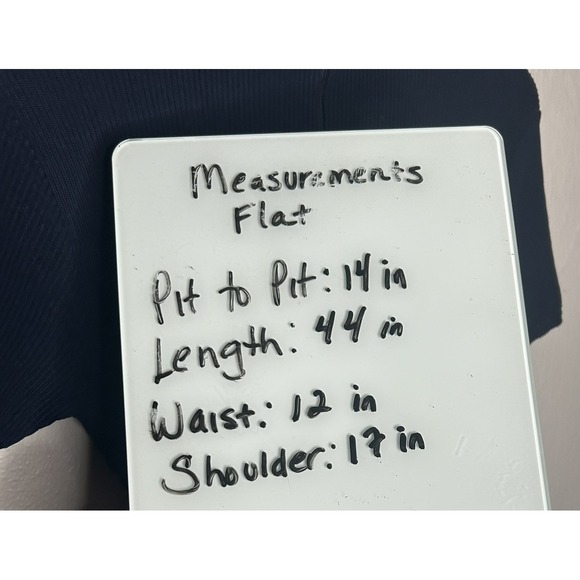 Measurements
Flat
Pit to Pit: 14 in
Length: 44 in
Waist: 12 in
Shoulder: 17 in